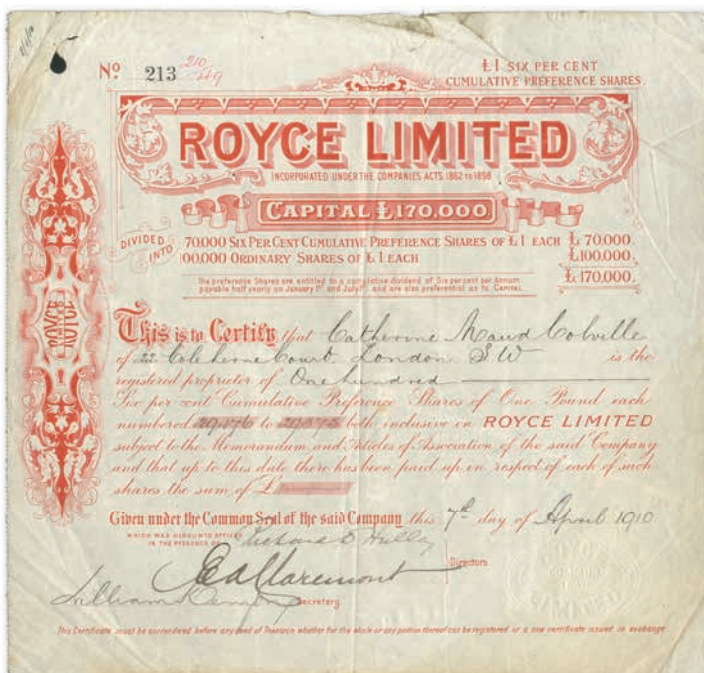 Nº 213 210/249
£1 SIX PER CENT
CUMULATIVE PREFERENCE SHARES
ROYCE LIMITED
INCORPORATED UNDER THE COMPANIES ACTS 1862 TO 1898
CAPITAL £170,000
DIVIDED INTO
70,000 SIX PER CENT CUMULATIVE PREFERENCE SHARES OF £1 EACH £70,000.
100,000 ORDINARY SHARES OF £1 EACH £100,000.
£170,000.
The preference Shares are entitled to a cumulative dividend of Six per cent per Annum
payable half yearly on January 1st and July 1st and are also preferential as to Capital.
ROYCE
LIMITED
ROYCE
This is to Certify that Catherine Maud Colville
of 22 Coleherne Court. London S W is the
registered proprietor of One hundred
Six per cent Cumulative Preference Shares of One Pound each
numbered to both inclusive in ROYCE LIMITED
subject to the Memorandum and Articles of Association of the said Company
and that up to this date there has been paid up in respect of each of such
shares the sum of £
Given under the Common Seal of the said Company this 7th day of April 1910
WHICH WAS HEREUNTO AFFIXED
IN THE PRESENCE OF
Claremont
Directors
William Secretary
ROYCE
LIMITED
This Certificate must be surrendered before any deed of Transfer whether for the whole or any portion thereof can be registered or a new certificate issued in exchange